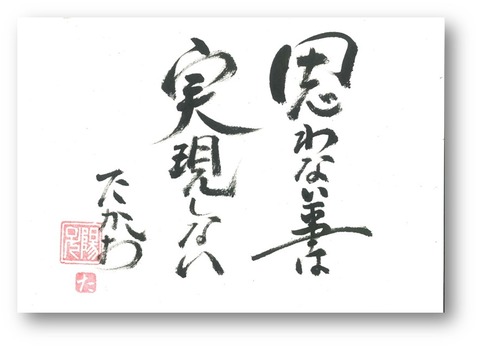 思わない事は
実現しない
たかわ
た